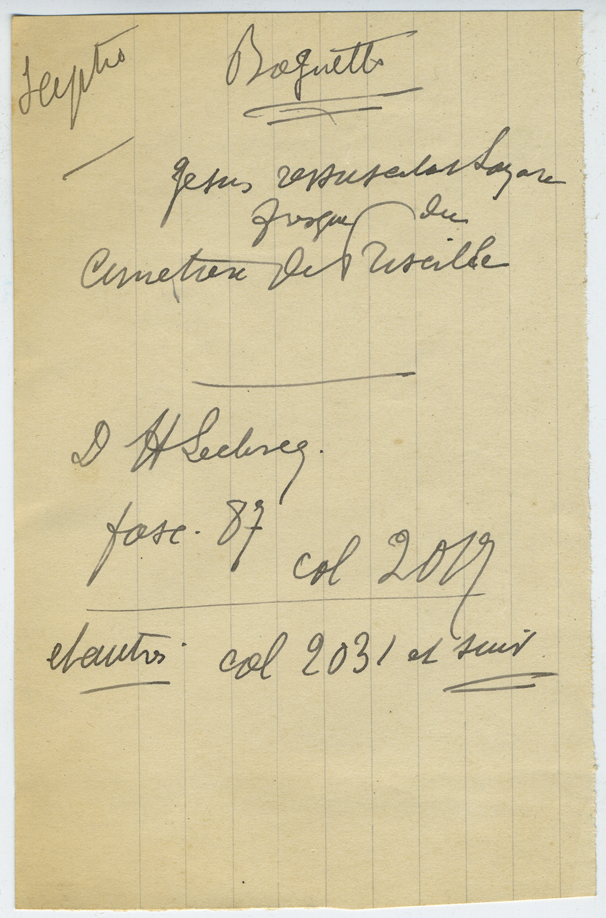 Sceptre
Baguette
Jesus ressuscitant Lazare
fresque du
Cimetiere de Priscille
D H Leclercq.
fasc. 87
col 2017
et autres. col 2031 et suiv.